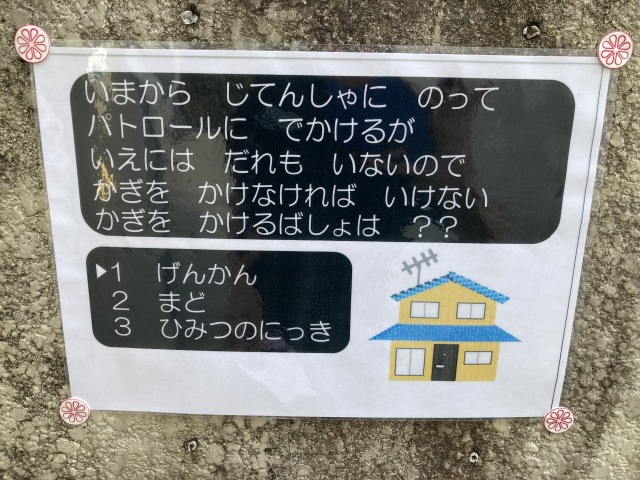 いまから　じてんしゃに　のって
パトロールに　でかけるが
いえには　だれも　いないので
かぎを　かけなければ　いけない
かぎを　かけるばしょは　？？
▶1　げんかん
2　まど
3　ひみつのにっき